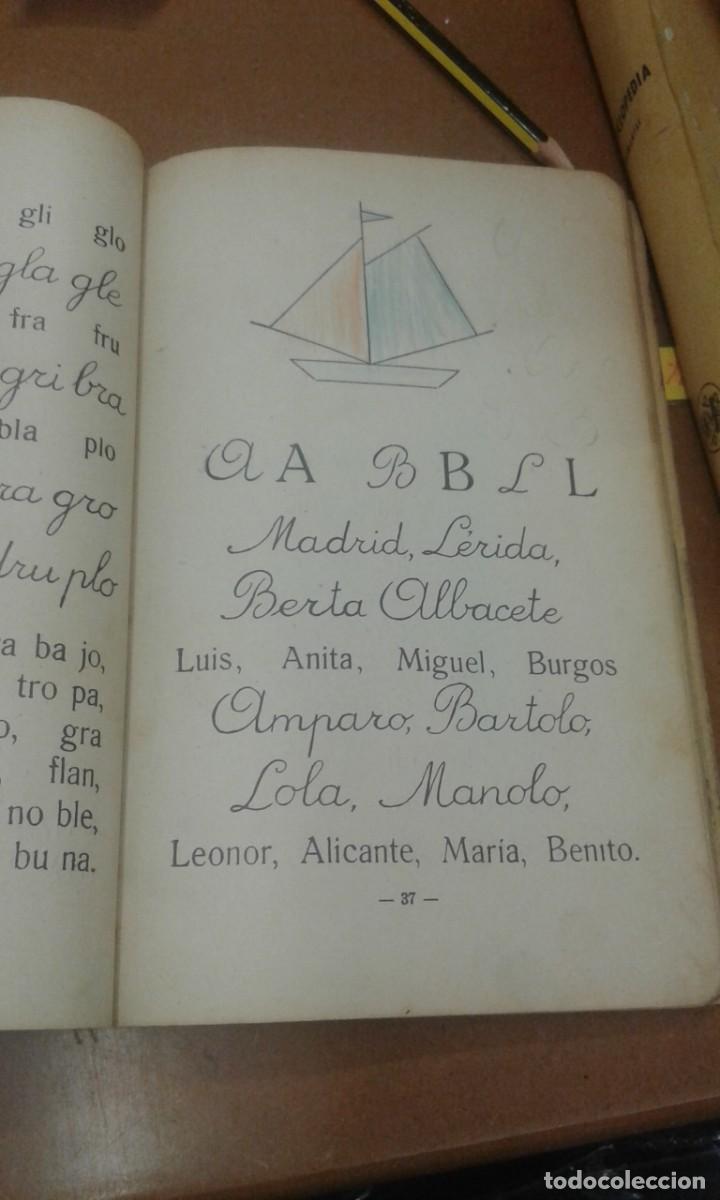 gli glo
gla gle
fra fru
gri bra
bla plo
gro
plo
ba jo,
tro pa,
gra
flan,
no ble,
bu na.
A A B B L L
Madrid, Lérida,
Berta Albacete
Luis, Anita, Miguel, Burgos
Amparo, Bartolo,
Lola, Manolo,
Leonor, Alicante, María, Benito.
— 37 —
todocoleccion